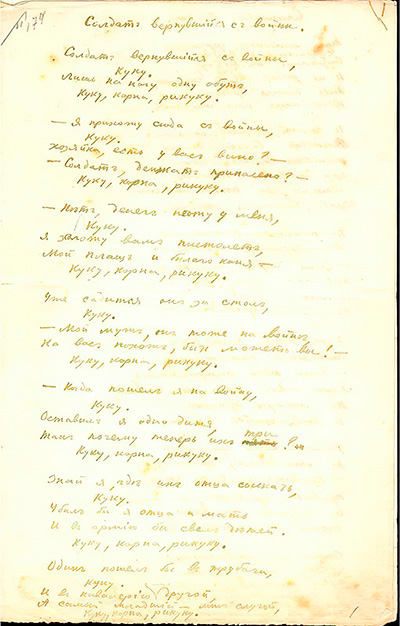 Солдатъ вернувшійся съ войны.
Солдатъ вернувшійся съ войны,
Куку.
Лишь на ногу одну обутъ,
Куку, корна, рикуку.
— Я прихожу сюда съ войны,
Куку.
Хозяйка, есть у васъ вино? —
— Солдатъ, денжатъ припасено? —
Куку, корна, рикуку.
— Нѣтъ, денегъ нѣту у меня,
Куку.
Я заложу вамъ пистолетъ,
Мой плащъ и бѣлаго коня —
Куку, корна, рикуку.
Уже садится онъ за столъ,
Куку.
— Мой мужъ, онъ тоже на войнѣ,
На васъ похожъ, быть можетъ вы! —
Куку, корна, рикуку.
— Когда пошелъ я на войну,
Куку.
Оставилъ я одно дитя,
Такъ почему теперь ихъ три ?
Куку, корна, рикуку.
Знай я, гдѣ ихъ отца сыскать,
Куку.
Убилъ бы я отца и мать
И въ армію бы свелъ дѣтей.
Куку, корна, рикуку.
Одинъ пошелъ бы въ трубачи,
Куку.
И въ кавалерію другой,
А самый младшій — мнѣ слугой,
Куку, корна, рикуку.